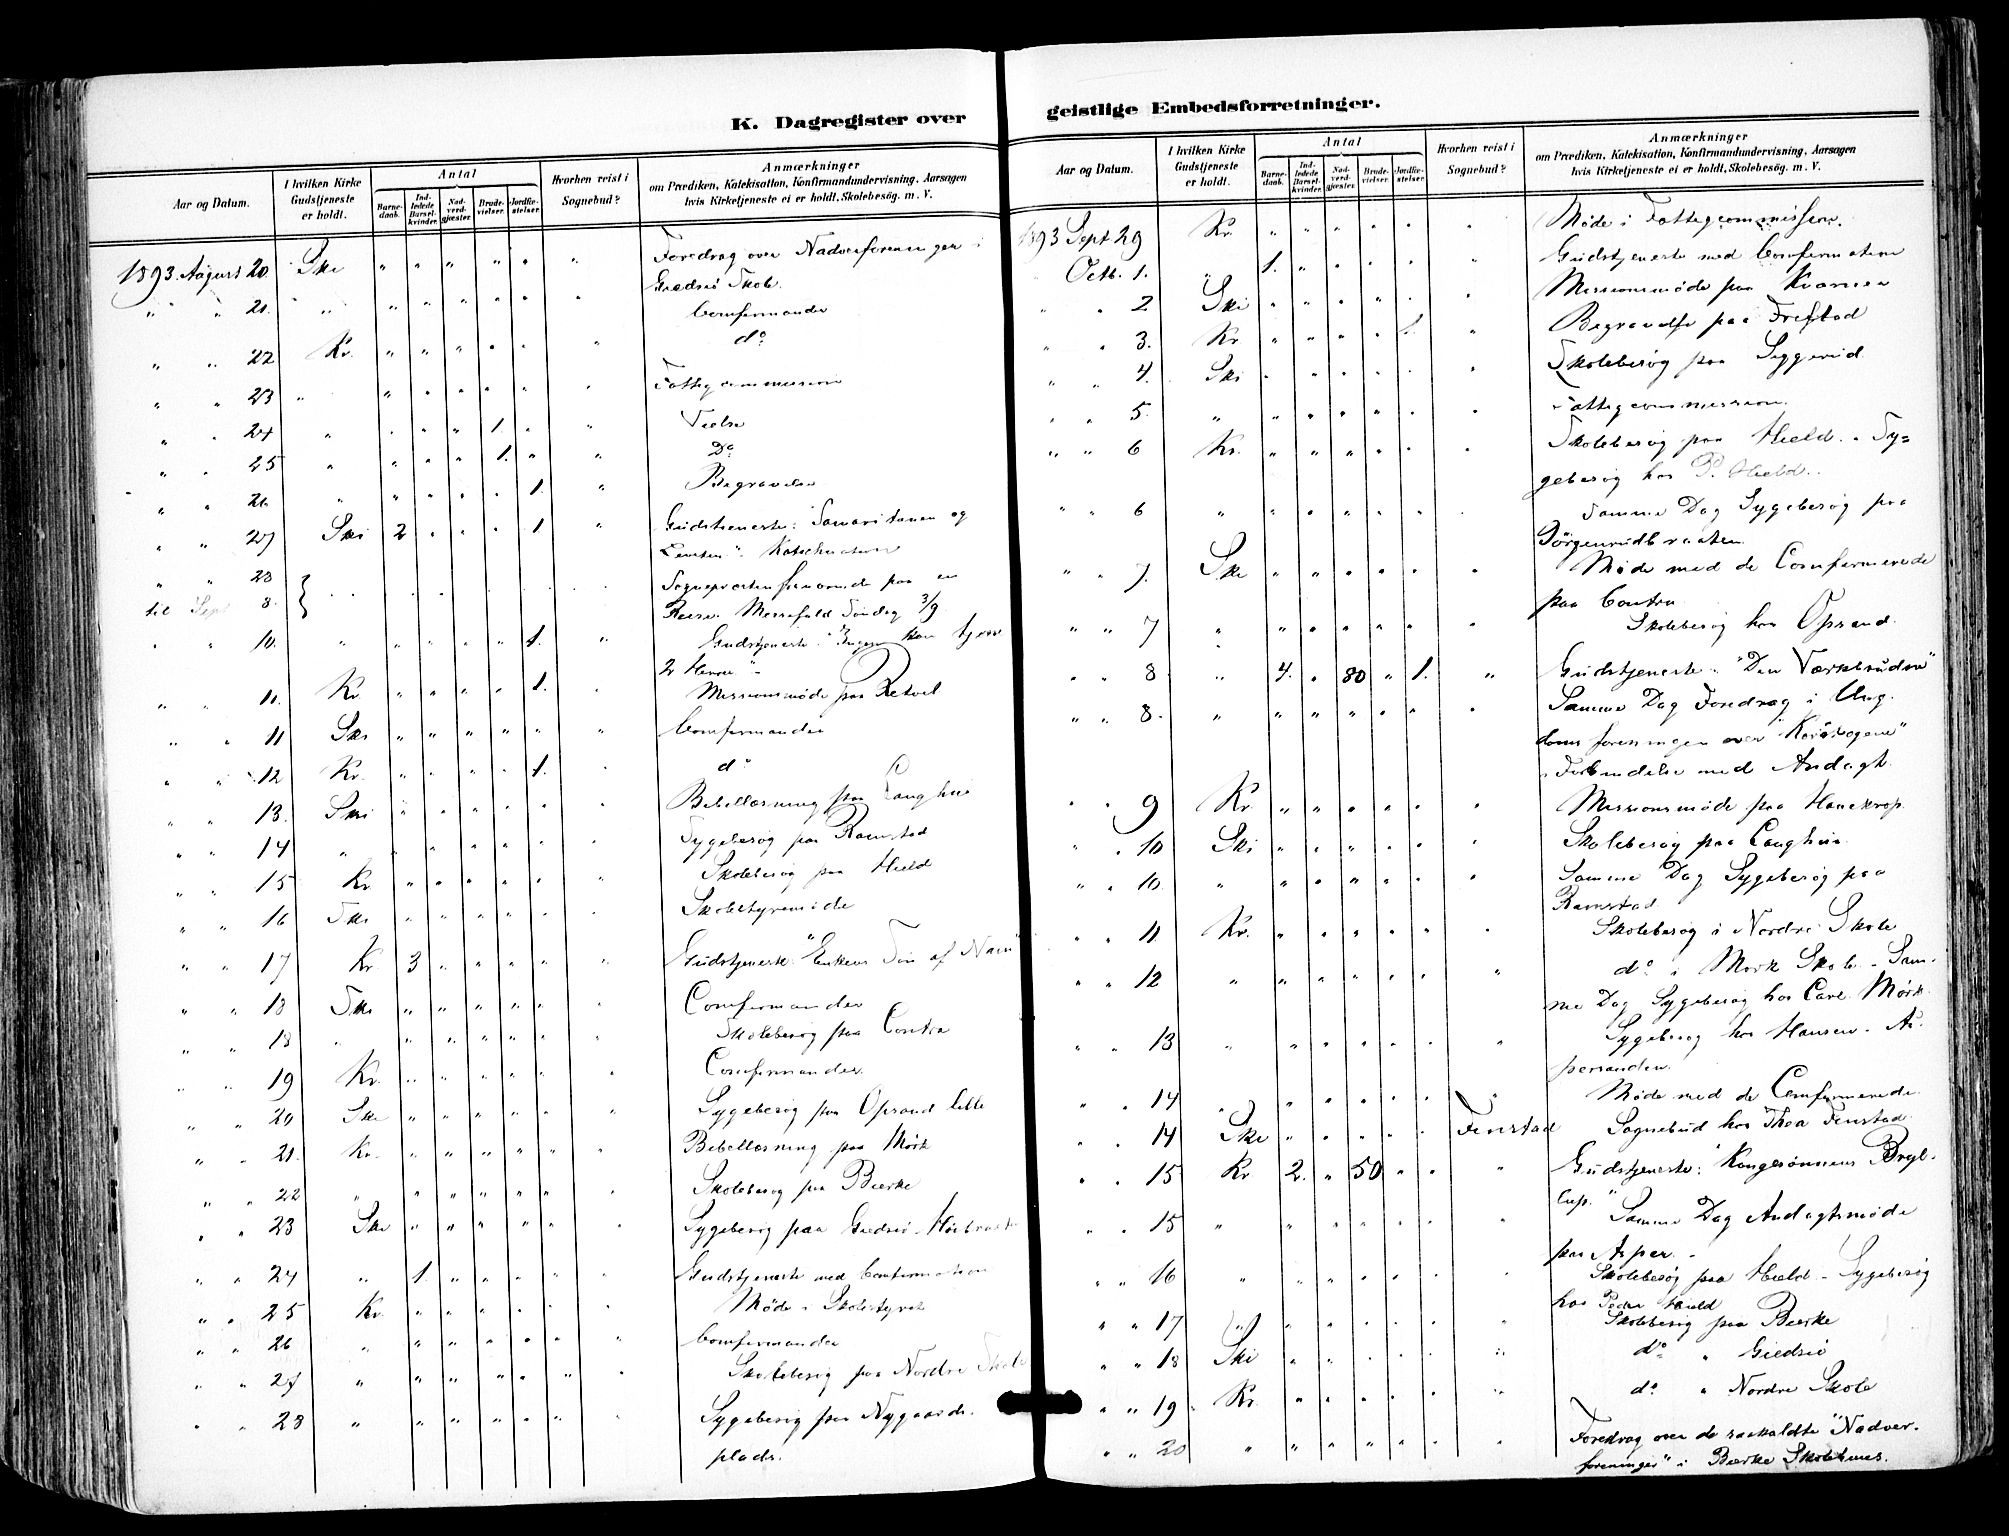 K. Dagregister over
Aar og Datum.
I hvilken Kirke Gudstjeneste er holdt.
Antal
Barnedaab.
Indledede Barselkvinder.
Nadverdgjæster.
Brudevielser.
Jordfæstelser.
Hvorhen reist i Sognebud?
Anmærkninger
om Prædiken, Katekisation, Konfirmandundervisning, Aarsagen
hvis Kirketjeneste ei er holdt, Skolebesög. m. V.
1893 August 20. Ski " " " " " " Foredrag over Nadverforeninger i
Giedsiö Skole.
" " 21. " " " " " " " Comfirmander
" " 22 Kr. " " " " " " do
" " 23 " " " " " " " Fattigcommission
" " 24 " " " " 1. " " Vielse
" " 25 " " " " 1. " " Do
" " 26 " " " " " 1. " Begravelse
" " 27 Ski 2 " " " 1 " Gudstieneste: Samaritanen og
Leviten". Katechisation
" " 28
til Sept 8. } Sognepresten fraværende paa en
Reise. Messefald Söndag 3/9
" " 10. " " " " " 1. " Gudstjeneste: "Ingen kan tjene
2 Herrer".
" " 11. Kr " " " " 1. " Missionsmöde paa Retvet
" " 11 Ski " " " " " " Comfirmander
" " 12 Kr. " " " " 1. " do
" " 13. Ski " " " " " " Bibellæsning paa Langhus
" " 14 " " " " " " " Sygebesög paa Ramstad
" " 15 Kr. " " " " " " Skolebesög paa Hield
" " 16 Ski " " " " " " Skolestyremöde
" " 17 Kr. 3 " " " " " Gudstjeneste: "Enkens Sön af Nain"
" " 18 Ski " " " " " " Comfirmander
" " 18 " " " " " " " Skolebesög paa Contra
" " 19 Kr. " " " " " " Comfirmander
" " 20 Ski " " " " " " Sygebesög paa Opsand lille
" " 21. Kr. " " " " " " Bibellæsning paa Mörk
" " 22 " " " " " " " Skolebesög paa Bierke
" " 23 Ski " " " " " " Sygebesög paa Giedsiö
" " 24 " 1. " " " " " Gudstjeneste med Confirmation
" " 25 Kr. " " " " " " Möde i Skolestyret
" " 26 " " " " " " " Comfirmander
" " 27 " " " " " " " Skolebesög paa Nordre Skole
" " 28 " " " " " " " Sygebesög paa Nygaards.
plads.
geistlige Embedsforretninger.
Aar og Datum.
I hvilken Kirke Gudstjeneste er holdt.
Antal
Barnedaab.
Indledede Barselkvinder.
Nadverdgjæster.
Brudevielser.
Jordfæstelser.
Hvorhen reist i Sognebud?
Anmærkninger
om Prædiken, Katekisation, Konfirmandundervisning, Aarsagen
hvis Kirketjeneste ei er holdt, Skolebesög. m. V.
1893 Sept 29 Kr. " " " " " " Möde i Fattigcommission.
Octb. 1. " 1. " " " " " Gudstjeneste med Comfirmation
" " 2 Ski " " " " " " Missionsmöde paa
" " 3. Kr. " " " " 1. " Begravelse paa
" " 4. Ski " " " " " " Skolebesög paa Siggerud
" " 5. " " " " " " " Fattigcommission.
" " 6 Kr. " " " " " " Skolebesög paa Hield. Sy=
gebesög hos P. Hield.
" " 6 " " " " " " " Samme Dag Sygebesög paa
Jörgenrudbraaten
" " 7. Ski " " " " " " Möde med de Comfirmerede
paa Contra
" " 7 " " " " " " " Skolebesög hos Opsand.
" " 8 " 4. " 80 " 1. " Gudstjeneste: "Den Værkbrudne"
" " 8. " " " " " " " Samme Dag Foredrag i Ung-
domsforeningen over "Korstogene"
i Forbindelse med Andagt.
" " 9 Kr " " " " " " Missionsmöde paa Hanekrop.
" " 10 Ski " " " " " " Skolebesög paa Langhus.
" " 10. " " " " " " " Samme Dag Sygebesög paa
Ramstad
" " 11 Kr. " " " " " " Skolebesög i Nordre Skole
" " 12 " " " " " " " do i Mörk Skole. Sam-
me Dag Sygebesög hos Carl Mörk.
" " 13 " " " " " " " Sygebesög hos Hansen.
" " 14 " " " " " " " Möde med de Comfirmerede.
" " 14 Ski " " " " " Finstad Sognebud hos Thea Finstad
" " 15 Kr 2. " 50 " " " Gudstjeneste: "Kongesönnens Bryl-
lup."
" " 15 " " " " " " " Samme Dag Andagtsmöde
paa Asper.
" " 16 " " " " " " " Skolebesög paa Hield. Sygebesög
hos Peder Hield
" " 17 " " " " " " " Skolebesög paa Bierke
" " 18 Ski " " " " " " do " Giedsiö
" " 19 Kr. " " " " " " do " Nordre Skole
" " 20 " " " " " " " Foredrag over de saakaldte "Nadver-
foreninger" i Bierke Skolehuus.